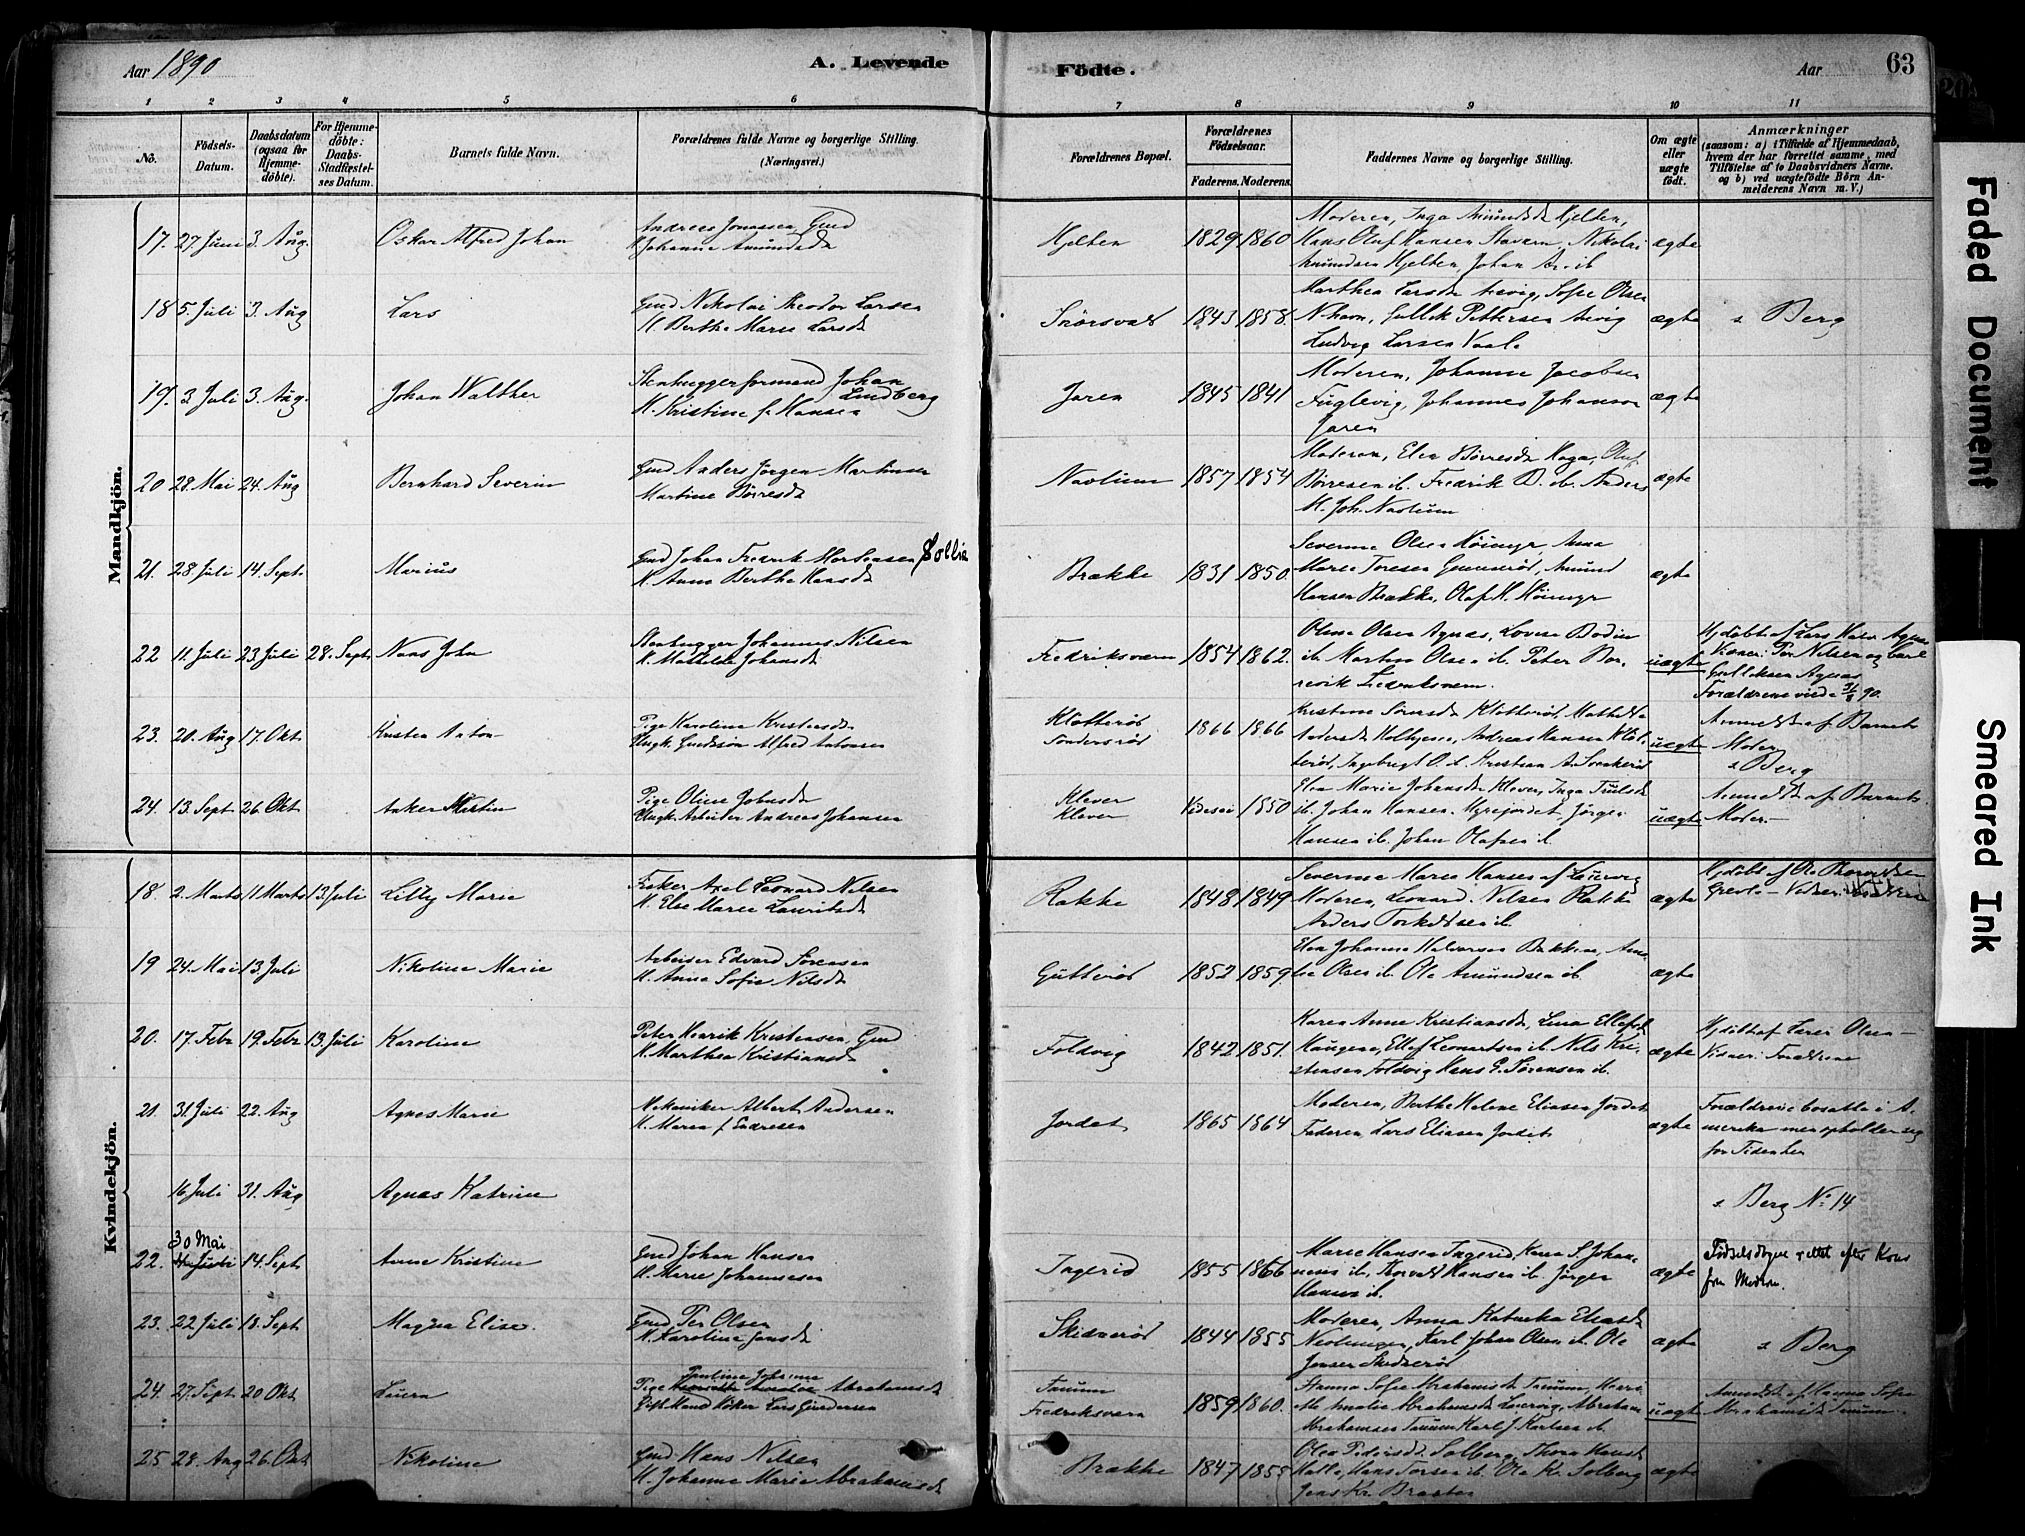 Aar 1890
A. Levende
Födte.
Aar
63
1 2 3 4 5 6 7 8 9 10 11
No.
Födsels-
Datum.
Daabsdatum
(ogsaa for
Hjemme-
döbte).
For Hjemme-
döbte:
Daabs-
Stadfæstel-
ses Datum.
Barnets fulde Navn.
Forældrenes fulde Navne og borgerlige Stilling.
(Næringsvei.)
Forældrenes Bopæl.
Forældrenes
Födselsaar.
Faderens. Moderens.
Faddernes Navne og borgerlige Stilling.
Om ægte
eller
uægte
födt.
Anmærkninger
(saasom: a) i Tilfælde af Hjemmedaab,
hvem der har forrettet samme, med
Tilföielse af to Daabsvidners Navne.
og b) ved uægtefödte Börn An-
melderens Navn m. V.)
Mandkjön.
17. 27 Juni 3. Aug. Oskar Alfred Johan
Andreas Jonassen Gmd
Johanne Amundsd
Hjelten 1829 1860
Moderen, Inga Amundsd Hjelten,
Hans Olaf Hansen Stavern, Nikolai
Amundsen Hjelten, Johan A. ib
ægte
18 5 Juli 3. Aug Lars
Gmd Nikolai Theodor Larsen
H. Berthe Marie Larsd
1843 1858.
Marthea Larsd Sofie Olsen
Nhavn, Gullik Pettersen
Ludvig Larsen
ægte s Berg
19. 3 Juli 3. Aug. Johan Walther
Stenhuggerformand Johan
Lindberg
H. Kristine f. Hansen
Jaren 1845 1841
Moderen, Johanne Jacobsen
Fuglevig, Johannes Johansen
Jaren
ægte
20 28. Mai 24. Aug Bernhard Severin
Gmd Anders Jörgen Martinsen
Martine Börresd
Navlum 1857 1854
Moderen, Elen Börresd Haga, Oluf
Börresen ib. Fredrik B. ib. Anders
M. Joh. Navlum
ægte
21. 28 Juli 14. Sept. Marius
Gmd Johan Fredrik Mortensen
H. Anne Berthe Hansd
Brække 1831 1850.
Severine Olsen Höimyr, Anna
Marie Toresen Gunnerød, Amund
Hansen Brække, Olaf H. Höimyr
ægte
22 11 Juli 23 Juli 28. Sept. John
Stenhugger Johannes Nilsen
H. Mathilde Johansd
Fredriksværn 1854 1862.
Oline Olsen Agnæs, Lovise Bodin
ib. Martin Olsen ib. Peter
Fredriksværn.
uægte
Hjdöbt af Lars Agnæs
Vidner: Per Nilsen og Carl
Gulliksen Agnæs
Forældrene viede 90.
23. 20. Aug 17. Okt Kristen Anton
Pige Karoline Kristensd
Ungk. Alfred Antonsen
Klötteröd
1866 1866
Kristine Klötteröd, Mathilde
Andersd Holhjem, Andreas Hansen
Ingebregt O. Kristian A.
uægte
Anmeldt af Barnets
Moder
s Berg
24. 13. Sept 26. Okt Anker Martin
Pige Oline Johnsd
Ungk. Arbeider Andreas Johansen
Klever
Klever 1850
Elen Marie Johansd Klever, Inga
ib. Johan Hansen Myrejordet, Jörgen
Hansen ib. Johan Olafsen ib.
uægte
Anmeldt af Barnets
Moder.
Kvindekjön.
18. 2. Marts 11 Marts 13 Juli Lilly Marie
Fisker Axel Leonard Nilsen
H. Else Marie Lauritsd
Rakke 1848 1849
Severine Marie Hansen af Laurvig
Moderen, Leonard Nilsen Rakke
Anders Torkildsen ib.
ægte
Hjdöbt af
19 24. Mai 13. Juli Nikoline Marie
Arbeider Edvard Sörensen
H. Anna Sofie Nilsd
Gutteröd 1852 1859
Elen Johanne Halvorsen Bakken,
Olsen ib. Ole Amundsen ib.
ægte
20. 17. Febr 19. Febr 13. Juli Karoline
Peter Henrik Kristensen, Gmd
H. Marthea Kristiansd
Foldvig 1842 1851.
Karen Anne Kristiansd, Lina Ellefsd
Haugene, Ellef Leonartsen ib. Nils Kri-
stensen Foldvig Hans C. Sörensen ib.
ægte
Hjdöbt af Olsen
Vidner: Forældrene
21. 31. Juli 22. Aug Agnes Marie
Mekaniker Albert Andersen
H. Maren f. Endresen
Jordet 1865 1864
Moderen, Berthe Helene Eliasen Jordet
Faderen Lars Eliasen Jordet
ægte
Forældrene bosatte i A-
merika men opholder sig
for Tiden her
16 Juli 31. Aug Agnes Katrine
s. Berg No 14
30 Mai
22. Juli 14. Sept Anne Kristine
Gmd Johan Hansen
H. Marie Johannesen
Ingerid 1855 1866
Marie Hansen Ingerid, Karen S. Johan-
nesen ib, Thorvald Hansen ib. Jörgen
Hansen ib.
ægte
Födselsdagen rettet efter
fra Moderen.
23. 22 Juli 18. Sept Magna Elise
Gmd Per Olsen
H. Karoline Jensd
Skidneröd 1844 1855
Moderen, Anna Katinka Eliasd
Karl Johan Olsen ib. Ole
Jensen Skidneröd
ægte s Berg
24. 27. Sept. 20. Okt Laura
Pauline Johanne
Pige Abrahamsd
Gift Mand Lars Gundersen
Tanum
Fredriksværn 1859 1860.
Hanna Sofie Abrahamsd Tanum,
Amalie Abrahamsd Laurvig, Abraham
Abrahamsen Tanum Karl J. Karlsen ib.
uægte
Anmeldt af Hanna Sofie
Abrahamsd Tanum.
25 28. Aug 26. Okt Nikoline
Gmd Hans Nilsen
H. Johanne Marie Abrahamsd
Brække 1847 1855
Olea Pedersd. Solberg, Thora Hansd
Halle, Hans Torsen ib. Ole K. Solberg
Jens Kr.
ægte
Faded Document
Smeared Ink